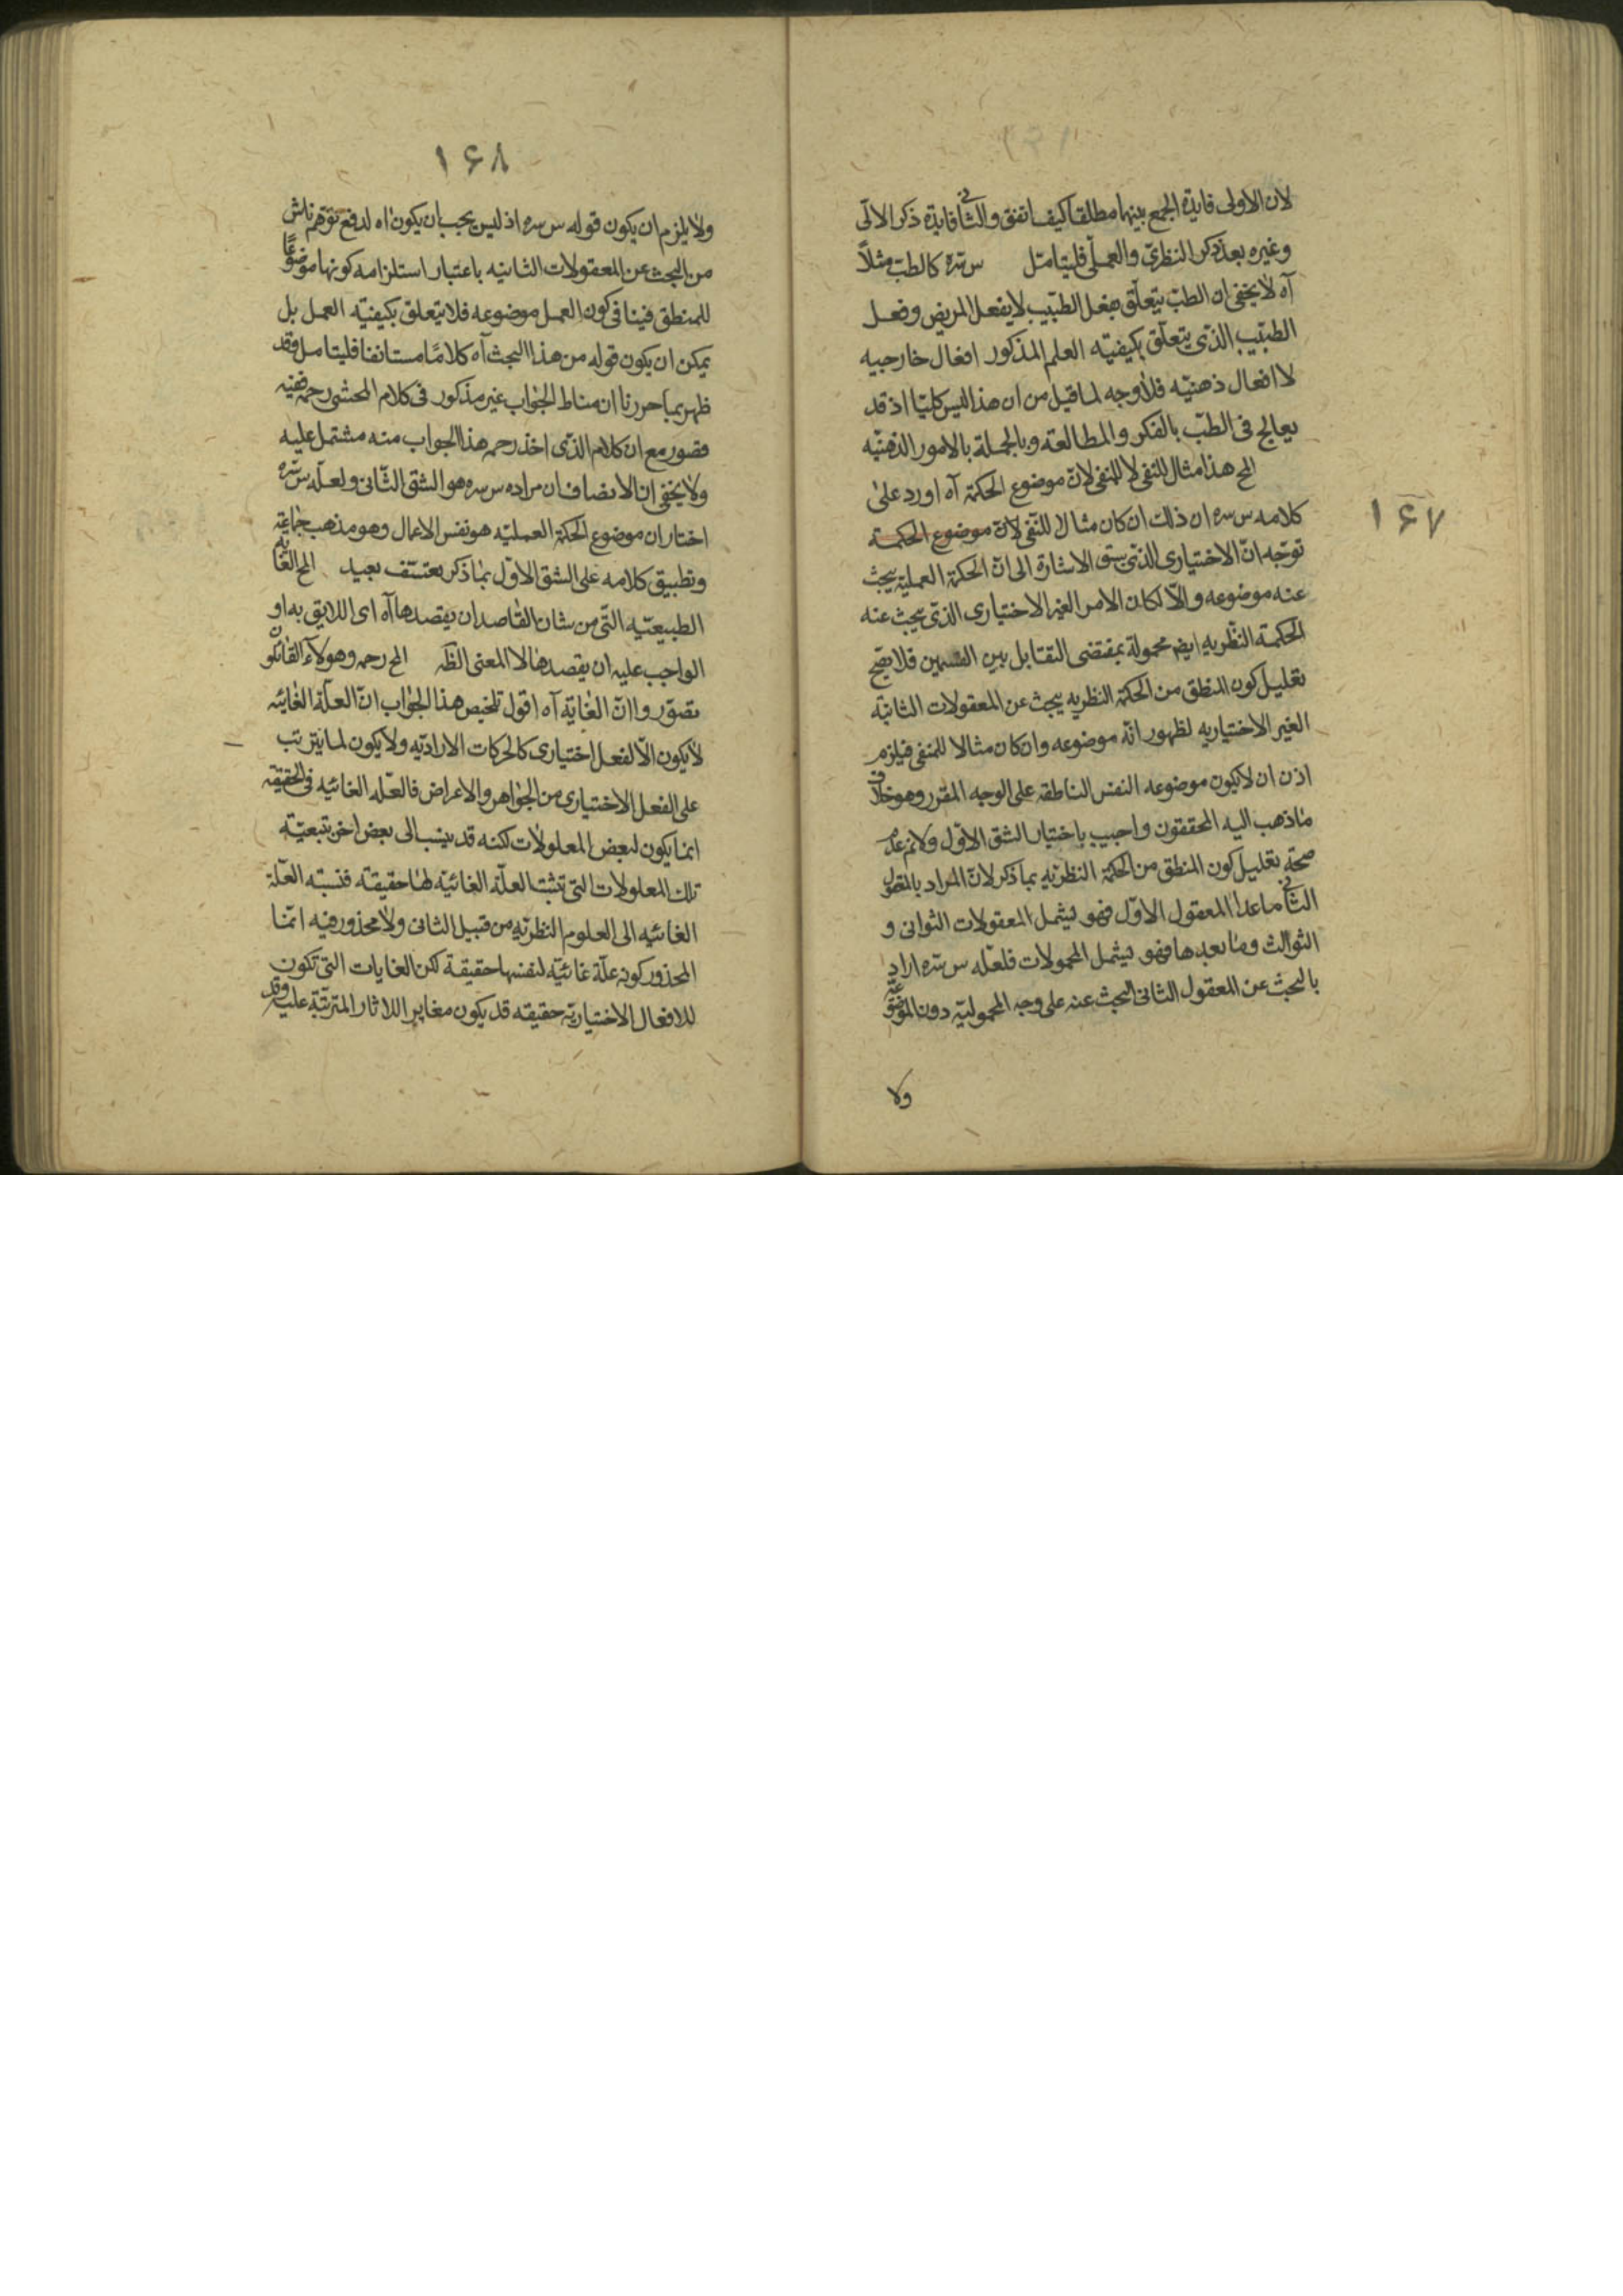 ۱۶۷
لان الاولى فايدة الجمع بينهما مطلقا كيف اتفق والثانى فايدة ذكر الالى
وغيره بعد ذكر النظرى والعملى فليتامل س سره كالطب مثلاً
آه لا يخفى ان الطب يتعلق بفعل الطبيب لا بفعل المريض وفعل
الطبيب الذى يتعلق بكيفيته العلم المذكور افعال خارجيه
لا افعال ذهنيه فلا وجه لما قيل من ان هذا ليس كليا اذ قد
يعالج فى الطب بالفكر والمطالعة وبالجملة بالامور الذهنيه
المح هذا مثال للنفى لا للمنفى لان موضوع الحكمة آه اورد على
كلامه س سره ان ذلك ان كان مثالا للنفى لان موضوع الحكمة
توجه ان الاختيارى الذى سبق الاشارة الى ان الحكمة العملية يبحث
عنه موضوعه والا لكان الامر الغير الاختيارى الذى يبحث عنه
الحكمة النظريه ايض محمولة بمقتضى التقابل بين القسمين فلا يصح
تعليل كون المنطق من الحكمة النظريه يبحث عن المعقولات الثانية
الغير الاختياريه لظهور انه موضوعه وان كان مثالا للمنفى فيلزم
اذن ان لا يكون موضوعه النفس الناطقه على الوجه المقرر وهو خلاف
ما ذهب اليه المحققون واجيب باختيار الشق الاول ولانم عدم
صحة تعليل كون المنطق من الحكمة النظريه بما ذكر لان المراد بالمعقول
الثانى ما عدا المعقول الاول فهو يشمل المعقولات الثوانى و
الثوالث وما بعدها فهو يشمل المحمولات فلعله س سره اراد
بالبحث عن المعقول الثانى البحث عنه على وجه المحمولية دون الموضوعية
ولا
۱۶۸
ولا يلزم ان يكون قوله س سره اذ ليس يجب ان يكون اه لدفع توهم ناش
من البحث عن المعقولات الثانيه باعتبار استلزامه كونها موضوعًا
للمنطق فينافى كون العمل موضوعه فلا يتعلق بكيفيته العمل بل
يمكن ان يكون قوله من هذا البحث آه كلامًا مستانفا فليتامل وقد
ظهر بما حررنا ان مناط الجواب غير مذكور فى كلام المحشى رحمه ففيه
قصور مع ان كلام الذى اخذ رحمه هذا الجواب منه مشتمل عليه
ولا يخفى ان الانصاف ان مراده س سره هو الشق الثانى ولعله س سره
اختار ان موضوع الحكمة العمليه هو نفس الاعمال وهو مذهب جماعة
وتطبيق كلامه على الشق الاول بما ذكر بتعسف بعيد المح الغايه
الطبيعيه التى من شان القاصد ان يقصدها آه اى اللايق به او
الواجب عليه ان يقصدها لا المعنى الظه المح رحمه وهولاء القائلون
تصوروا ان الغاية آه اقول تلخيص هذا الجواب ان العلة الغائيه
لا يكون الا لفعل اختيارى كالحركات الاراديه ولا يكون لما يترتب
على الفعل الاختيارى من الجواهر والاعراض فالعله الغائيه فى الحقيقه
انما يكون لبعض المعلولات لكنه قد ينسب الى بعض اخر بتبعيته
تلك المعلولات التى تثبت العلة الغائيه لها حقيقة فنسبته العلة
الغائيه الى العلوم النظريه من قبيل الثانى ولا محذور فيه انما
المحذور كونه علة غائيه لنفسها حقيقة لكن الغايات التى تكون
للافعال الاختياريه حقيقه قد يكون مغاير اللاثار المترتبة عليه وقد